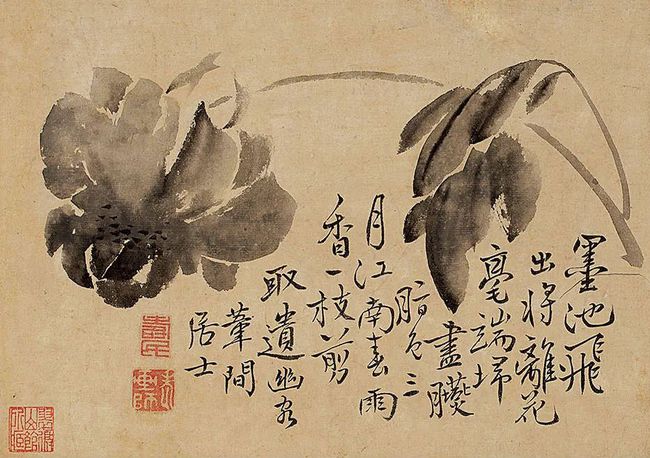 墨池飛
出將離花
毫端埽
盡臙
脂色三
月江南春雨
香一枝剪
取遺幽客
葦間
居士
壽民